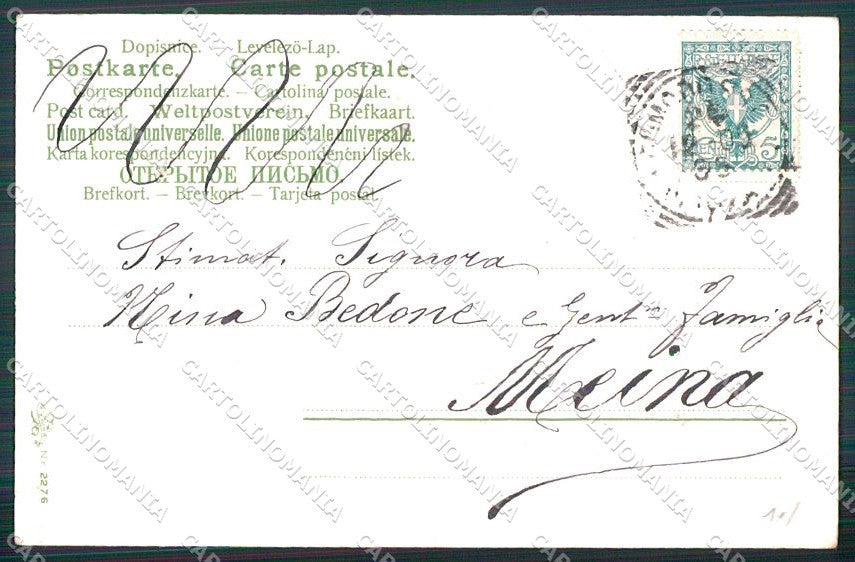 Dopisnice. — Levelezö-Lap.
Postkarte. — Carte postale.
Correspondenzkarte. — Cartolina postale.
Post card. — Weltpostverein. — Briefkaart.
Union postale universelle. Unione postale universale.
Karta korespondencyjna. Korespondenční lístek.
ОТКРЫТОЕ ПИСЬМО.
Brefkort. — Brevkort. — Tarjeta postal.
Stimat. Signora
Nina Bedone e Gent.ma famiglia
Meina
Nr. 2276
CARTOLINOMANIA